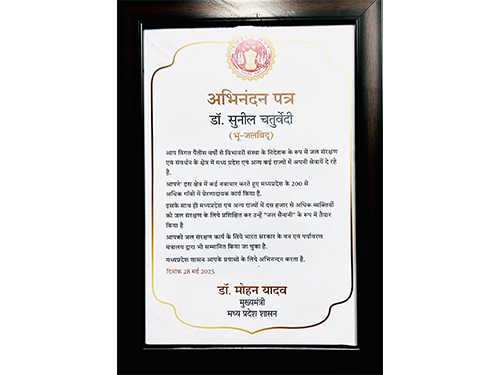 अभिनंदन पत्र
डॉ. सुनील चतुर्वेदी
(भू-जलविद्)
आप विगत पैंतीस वर्षों से विभावरी संस्था के निदेशक के रूप में जल संरक्षण
एवं संवर्धन के क्षेत्र में मध्य प्रदेश एवं अन्य कई राज्यों में अपनी सेवायें दे रहे
हैं.
आपने' इस क्षेत्र में कई नवाचार करते हुए मध्यप्रदेश के 200 से
अधिक गाँवों में प्रेरणादायक कार्य किया हैं.
इसके साथ ही मध्यप्रदेश एवं अन्य राज्यों में दस हजार से अधिक व्यक्तियों
को जल संरक्षण के लिये प्रशिक्षित कर उन्हें "जल सैनानी" के रूप में तैयार
किया है
आपको जल संरक्षण कार्य के लिये भारत सरकार के वन एवं पर्यावरण
मंत्रालय द्वारा भी सम्मानित किया जा चुका है.
मध्यप्रदेश शासन आपके प्रयासों के लिये अभिनन्दन करता है.
दिनांक 28 मई 2025
डॉ. मोहन यादव
मुख्यमंत्री
मध्य प्रदेश शासन